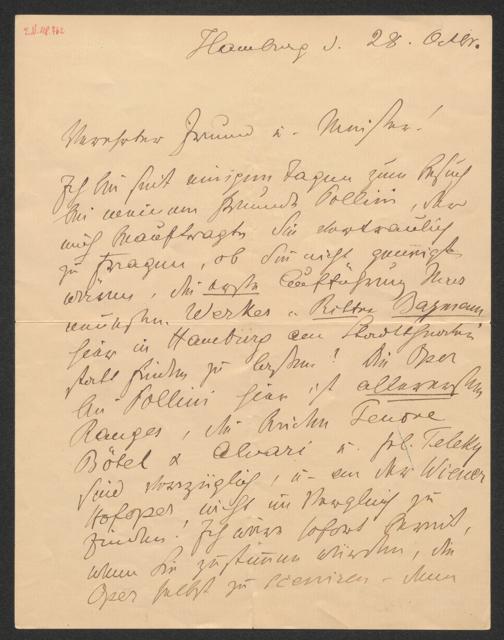 Hamburg d. 28. Octbr.
Verehrter Freund u. Meister!
Ich bin seit einigen Tagen zum Besuch
bei meinem Freunde Pollini, der
mich beauftragte Sie vertraulich
zu fragen, ob Sie nicht geneigt
wären, die erste Aufführung Ihres
neuesten Werkes „Ritter Pazmann
hier in Hamburg am Stadttheater
statt finden zu lassen! Die Oper
bei Pollini hier ist allerersten
Ranges, die beiden Tenore
Bötel & Alvari u. Frl. Teleky
sind vorzüglich, u – an der Wiener
Hofoper nicht im Vergleich zu
finden! Ich wäre sofort bereit,
wenn Sie zustimmen würden, die
Oper selbst zu sceniren – denn